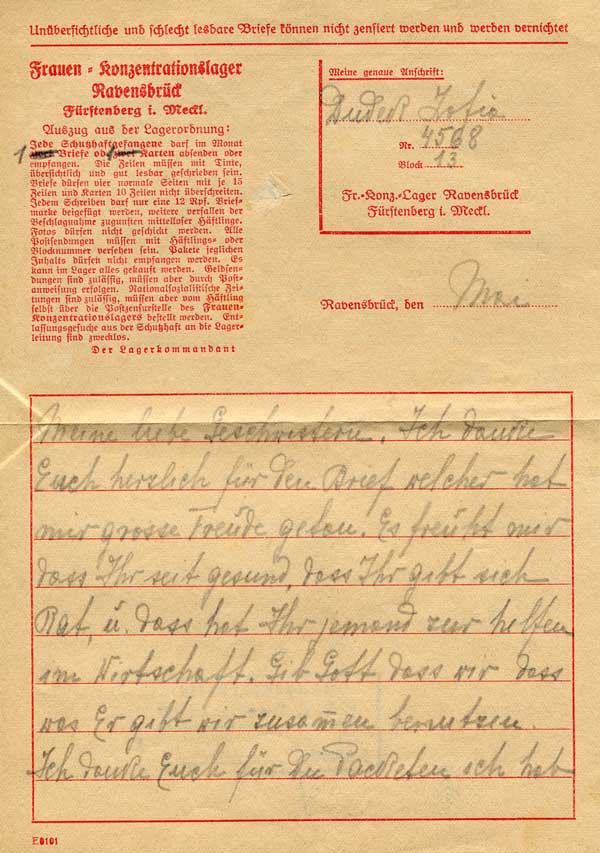 Unübersichtliche und schlecht lesbare Briefe können nicht zensiert werden und werden vernichtet
Frauen-Konzentrationslager
Ravensbrück
Fürstenberg i. Meckl.
Auszug aus der Lagerordnung:
Jede Schutzhaftgefangene darf im Monat
1 Briefe od. 1 Karten absenden oder
empfangen. Die Zeilen müssen mit Tinte,
übersichtlich und gut lesbar geschrieben sein.
Briefe dürfen vier normale Seiten mit je 15
Zeilen und Karten 10 Zeilen nicht überschreiten.
Jedem Schreiben darf nur eine 12 Rpf. Brief-
marke beigefügt werden, weitere verfallen der
Beschlagnahme zugunsten mittelloser Häftlinge.
Fotos dürfen nicht geschickt werden. Alle
Postsendungen müssen mit Häftlings- oder
Blocknummer versehen sein. Pakete jeglichen
Inhalts dürfen nicht empfangen werden. Es
kann im Lager alles gekauft werden. Geldsen-
dungen sind zulässig, müssen aber durch Post-
anweisung erfolgen. Nationalsozialistische Zei-
tungen sind zulässig, müssen aber vom Häftling
selbst über die Postzensurstelle des Frauen-
Konzentrationslagers bestellt werden. Ent-
lassungsgesuche aus der Schutzhaft an die Lager-
leitung sind zwecklos.
Der Lagerkommandant
Meine genaue Anschrift:
Dudeck Zofia
Nr. 4568
Block 13
Fr.-Konz.-Lager Ravensbrück
Fürstenberg i. Meckl.
Ravensbrück, den Mai
Meine liebe Geschwistern. Ich danke
Euch herzlich für den Brief welcher hat
mir grosse Freude getan. Es freuht mir
dass Ihr seit gesund, dass Ihr gibt sich
Rat, u. dass hat Ihr jemand zur helfen
im Wirtschaft. Gib Gott dass wir dass
was Er gibt wir zusammen bernutzen.
Ich danke Euch für die Packeten ich hab
E0101